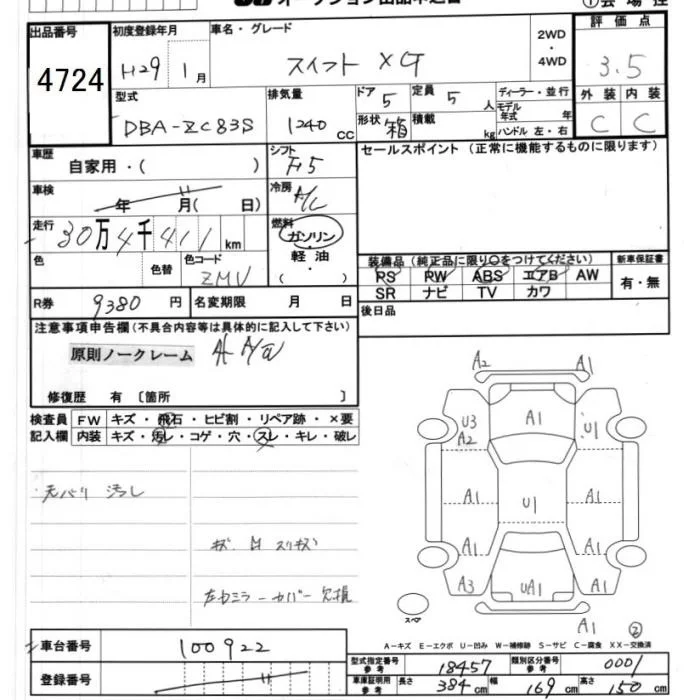 オークション出品申込書
①会場控
出品番号
4724
初度登録年月
H29 1月
車名・グレード
スイフト XG
2WD・4WD
評価点
3.5
型式
DBA-ZC83S
排気量
1240 CC
ドア 5
定員 5人
形状 箱
積載 kg
ディーラー・並行
モデル年式 年
ハンドル 左・右
外装 内装
C C
車歴
自家用・( )
シフト
F5
セールスポイント (正常に機能するものに限ります)
車検
年 月( 日)
冷房
A/C
走行
30万4千411km
燃料
ガソリン
軽油・
( )
色
色替
色コード
ZMV
装備品 (純正品に限り○をつけてください)
PS PW ABS エアB AW
SR ナビ TV カワ
新車保証書
有・無
R券 9380円
名変期限 月 日
後日品
注意事項申告欄(不具合内容等は具体的に記入して下さい)
原則ノークレーム
修復歴 有 〔箇所 〕
検査員記入欄
FW キズ・飛石・ヒビ割・リペア跡・×要
内装 キズ・汚レ・コゲ・穴・スレ・キレ・破レ
天バリ 汚レ
キズ 凹 スリキズ
左ドミラーカバー欠損
A2 A1
U3 A2 A1 U1
A1 U1 A1
A1 A1
A3 UA1 A1
A1 ②
スペア
A-キズ E-エクボ U-凹み W-補修跡 S-サビ C-腐食 XX-交換済
車台番号
100922
登録番号
型式指定番号 参考 18457
類別区分番号 参考 0001
車庫証明用 参考 長さ 384cm 幅 169cm 高さ 150cm